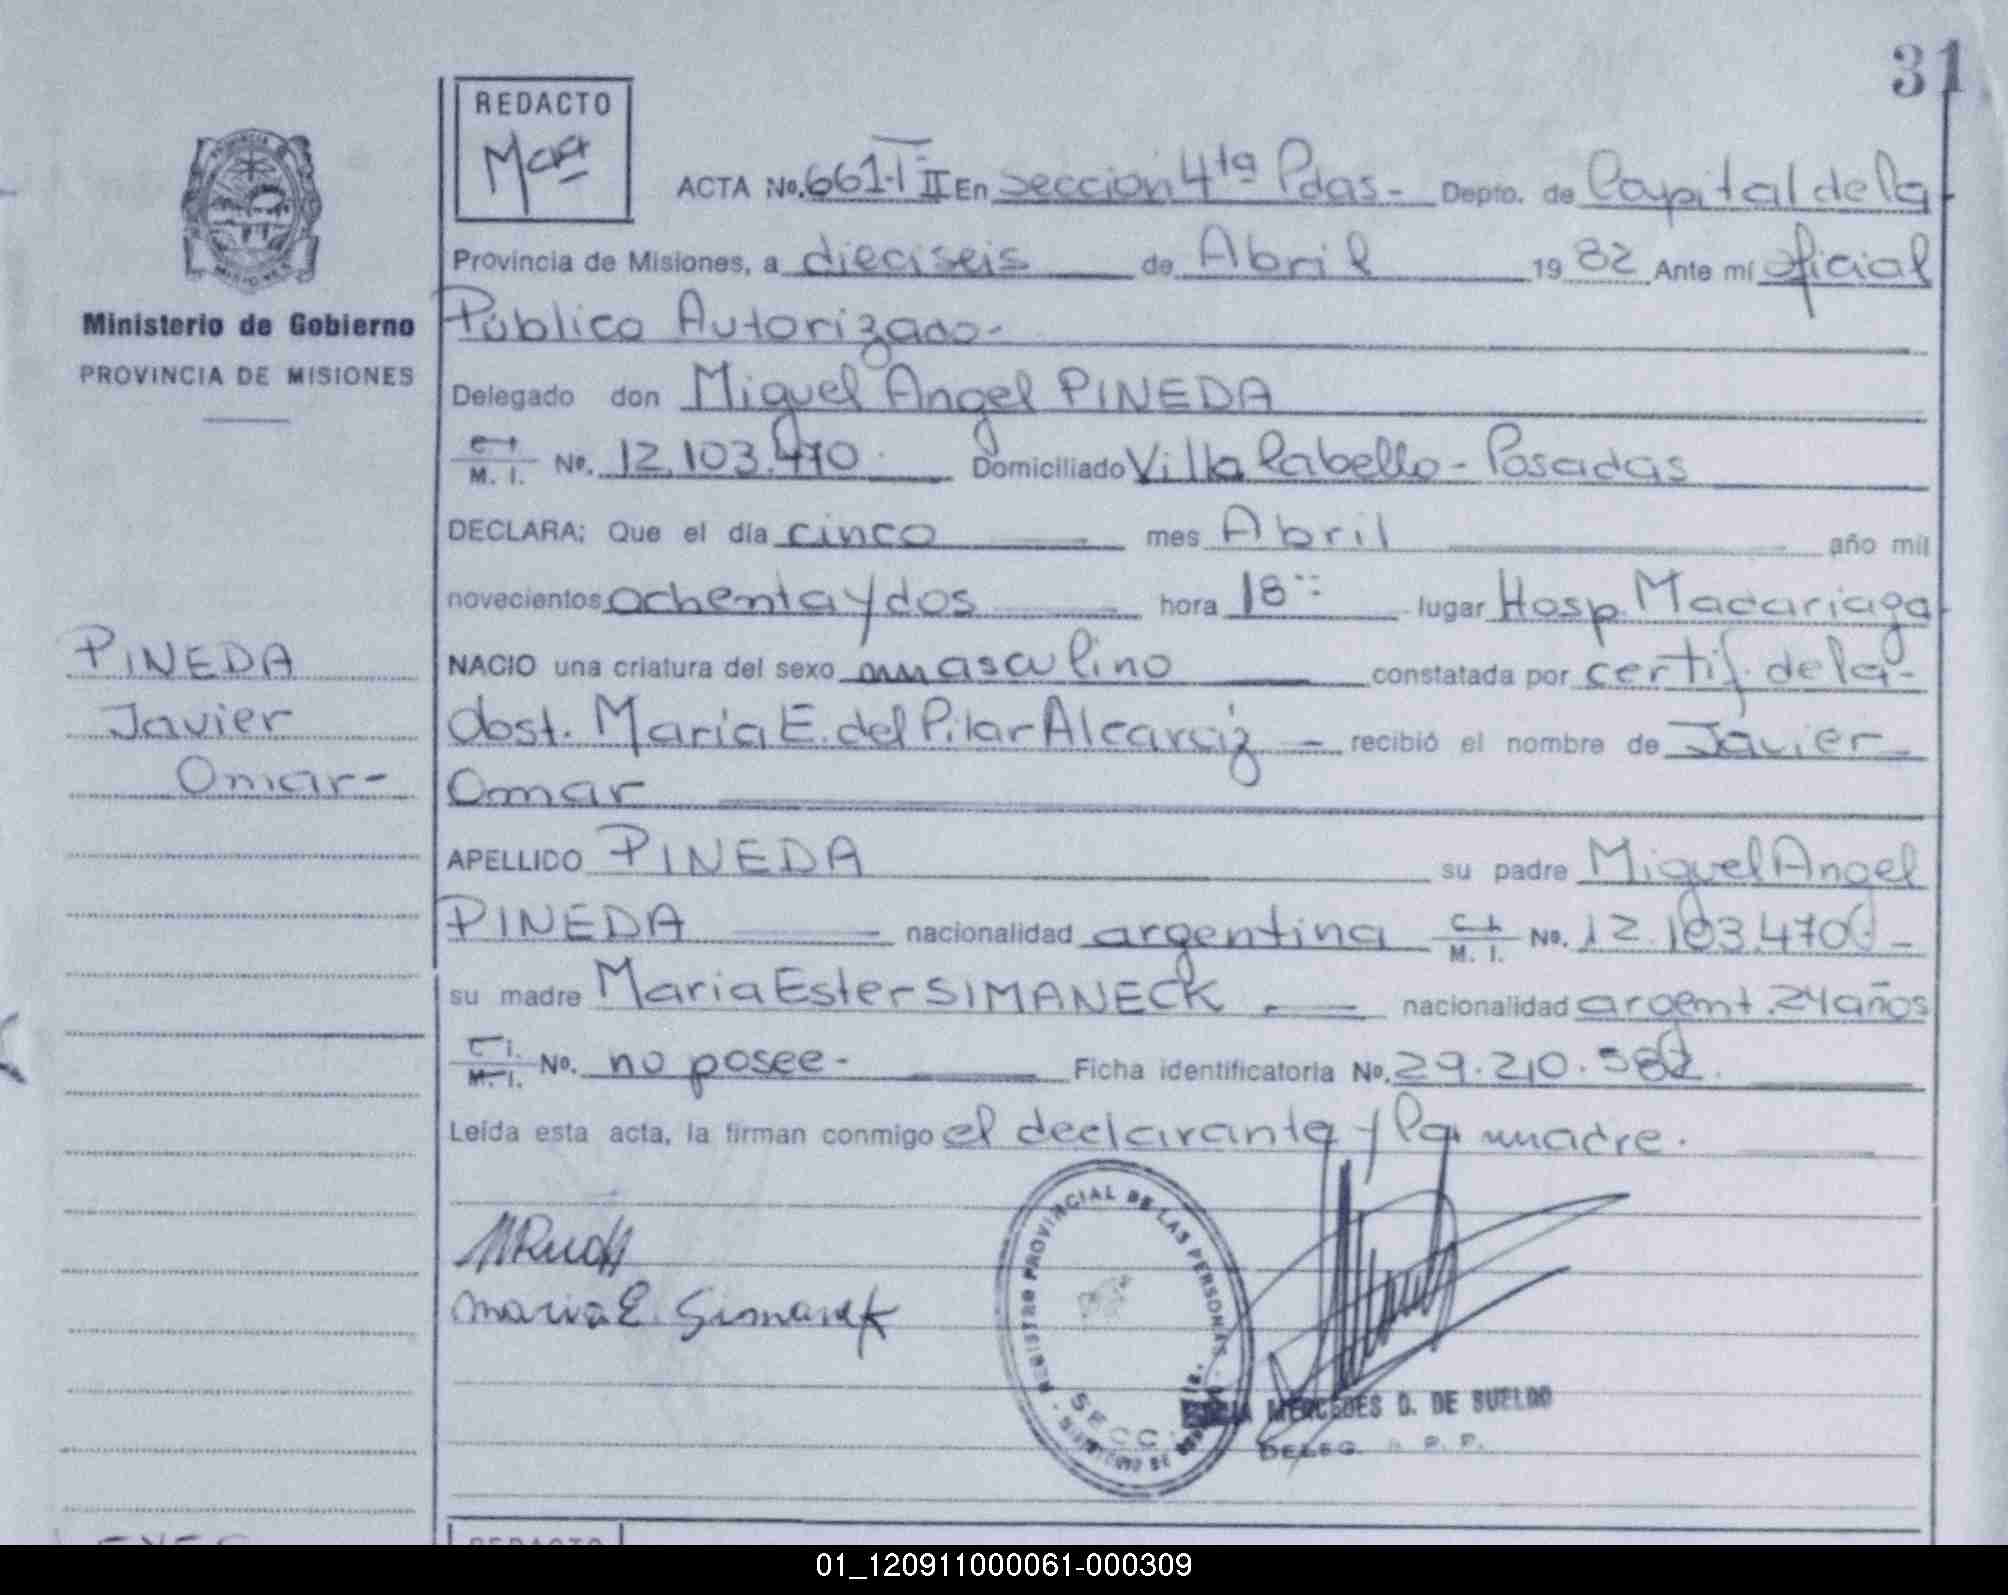 31
REDACTO
ACTA No. 661-T II En sección 4ta Pdas- Depto. de Capital de la
Provincia de Misiones, a dieciseis de Abril 1982 Ante mí oficial
Público Autorizado-
Ministerio de Gobierno
PROVINCIA DE MISIONES
Delegado don Miguel Angel PINEDA
M. I. No. 12.103.470 Domiciliado Villa Cabello - Posadas
DECLARA; Que el día cinco mes Abril año mil
novecientos ochenta y dos hora 18 lugar Hosp. Madariaga
NACIO una criatura del sexo masculino constatada por certif. de la-
Obst. María E. del Pilar Alcaraz - recibió el nombre de Javier
Omar
PINEDA
Javier
Omar-
APELLIDO PINEDA su padre Miguel Angel
PINEDA nacionalidad argentina C.I. M. I. No. 12.103.470 -
su madre Maria Ester SIMANECK nacionalidad argent. 24 años
C.I. M. I. No. no posee- Ficha identificatoria No. 29.210.582.
Leída esta acta, la firman conmigo el declarante y la madre.
Maria E. Simaneck
REGISTRO PROVINCIAL DE LAS PERSONAS
SECC
MERCEDES D. DE SUELDO
DELEG. R. P. P.
REDACTO
01_120911000061-000309